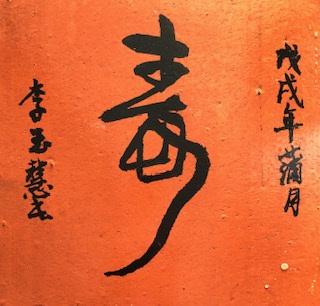 戊戌年蒲月
壽
李玉慧書